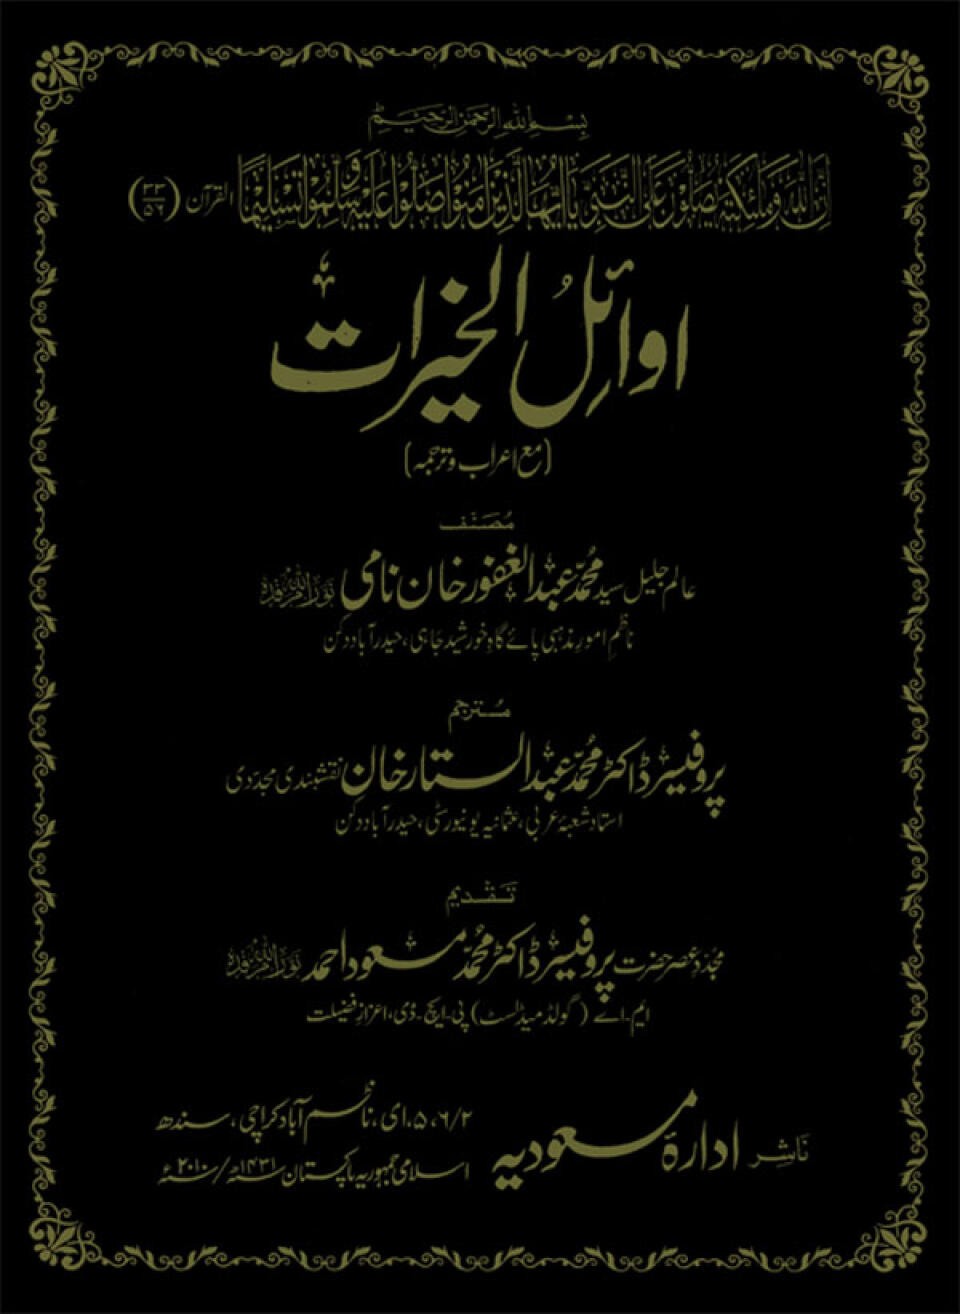 بسم الله الرحمن الرحيم
اِنَّ اللّٰهَ وَمَلٰٓئِكَتَهٗ يُصَلُّوْنَ عَلَى النَّبِيِّ يٰٓاَيُّهَا الَّذِيْنَ اٰمَنُوْا صَلُّوْا عَلَيْهِ وَسَلِّمُوْا تَسْلِيْمًا القرآن (۳۳/۵۶)
اوائلُ الخیرات
(مع اعراب و ترجمہ)
مُصَنّف
عالم جلیل سید محمّد عبد الغفور خان نامی نور اللہ مرقدہ
ناظم امورِ مذہبی پائے گاہ خورشید جاہی، حیدرآباد دکن
مُترجم
پروفیسر ڈاکٹر محمّد عبد الستار خان نقشبندی مجدّدی
استاد شعبۂ عربی، عثمانیہ یونیورسٹی، حیدرآباد دکن
تقدیم
مجدّدِ عصر حضرت پروفیسر ڈاکٹر محمّد مسعود احمد نور اللہ مرقدہ
ایم۔اے (گولڈ میڈلسٹ) پی۔ایچ۔ڈی، اعزازِ فضیلت
ناشر ادارۂ مسعودیہ
۶/۲، ۵، ای، ناظم آباد کراچی، سندھ
اسلامی جمہوریہ پاکستان ۱۴۳۱ھ/۲۰۱۰ء